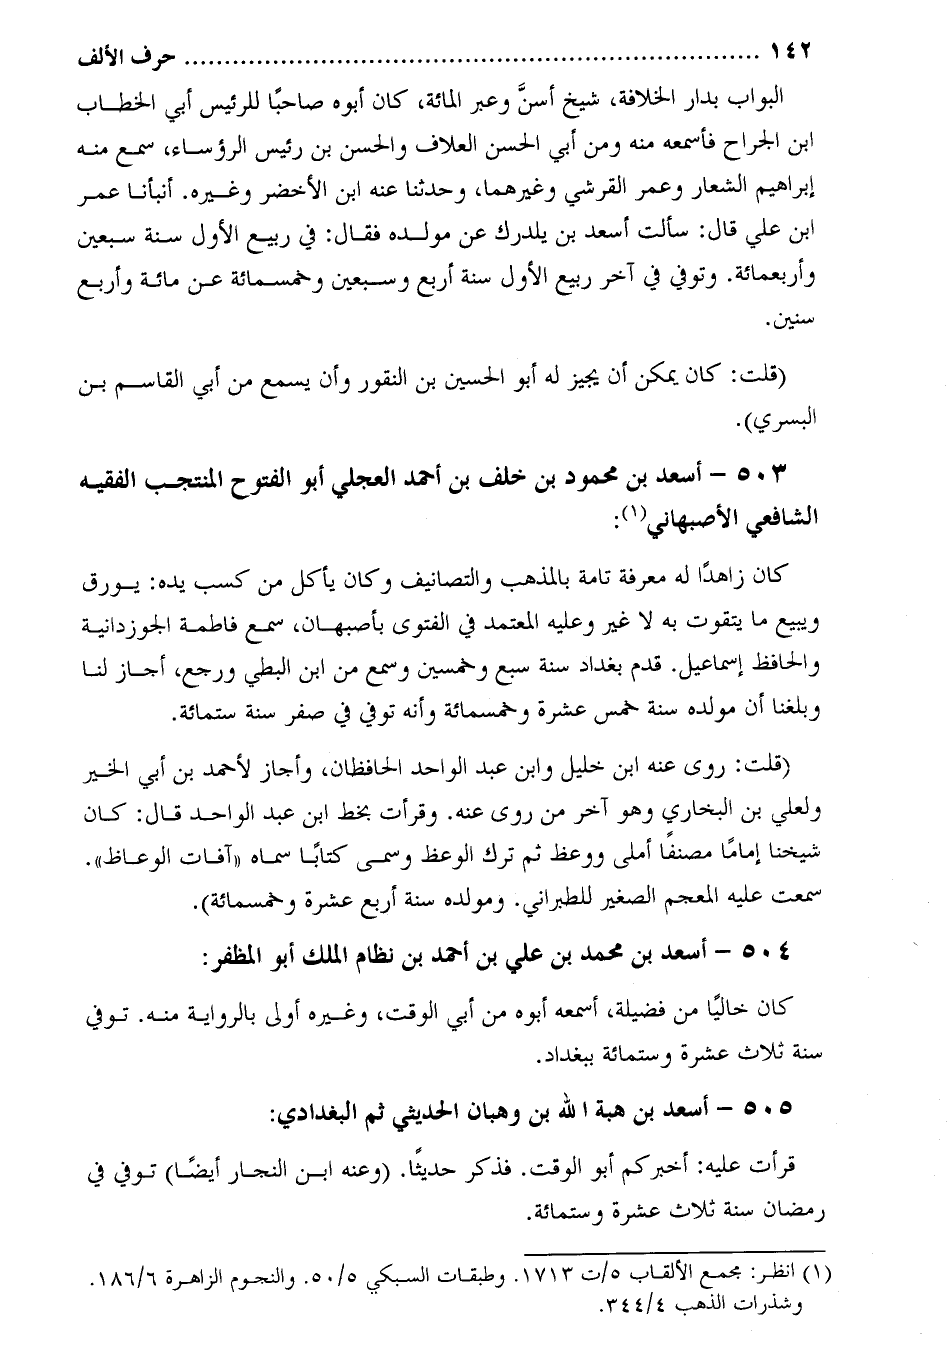 ١٤٢ ........................................................................ حرف الألف
البواب بدار الخلافة، شيخ أسنَّ وعبر المائة، كان أبوه صاحبًا للرئيس أبي الخطاب
ابن الجراح فأسمعه منه ومن أبي الحسن العلاف والحسن بن رئيس الرؤساء، سمع منه
إبراهيم الشعار وعمر القرشي وغيرهما، وحدثنا عنه ابن الأخضر وغيره. أنبأنا عمر
ابن علي قال: سألت أسعد بن يلدرك عن مولده فقال: في ربيع الأول سنة سبعين
وأربعمائة. وتوفي في آخر ربيع الأول سنة أربع وسبعين وخمسمائة عن مائة وأربع
سنين.
(قلت: كان يمكن أن يجيز له أبو الحسين بن النقور وأن يسمع من أبي القاسم بن
البسري).
٥٠٣ – أسعد بن محمود بن خلف بن أحمد العجلي أبو الفتوح المنتجب الفقيه
الشافعي الأصبهاني(١):
كان زاهدًا له معرفة تامة بالمذهب والتصانيف وكان يأكل من كسب يده: يورق
ويبيع ما يتقوت به لا غير وعليه المعتمد في الفتوى بأصبهان، سمع فاطمة الجوزدانية
والحافظ إسماعيل. قدم بغداد سنة سبع وخمسين وسمع من ابن البطي ورجع، أجاز لنا
وبلغنا أن مولده سنة خمس عشرة وخمسمائة وأنه توفي في صفر سنة ستمائة.
(قلت: روى عنه ابن خليل وابن عبد الواحد الحافظان، وأجاز لأحمد بن أبي الخير
ولعلي بن البخاري وهو آخر من روى عنه. وقرأت بخط ابن عبد الواحد قال: كان
شيخنا إمامًا مصنفًا أملى ووعظ ثم ترك الوعظ وسمى كتابًا سماه «آفات الوعاظ».
سمعت عليه المعجم الصغير للطبراني. ومولده سنة أربع عشرة وخمسمائة).
٥٠٤ – أسعد بن محمد بن علي بن أحمد بن نظام الملك أبو المظفر:
كان خاليًا من فضيلة، أسمعه أبوه من أبي الوقت، وغيره أولى بالرواية منه. توفي
سنة ثلاث عشرة وستمائة ببغداد.
٥٠٥ – أسعد بن هبة الله بن وهبان الحديثي ثم البغدادي:
قرأت عليه: أخبركم أبو الوقت. فذكر حديثًا. (وعنه ابن النجار أيضًا) توفي في
رمضان سنة ثلاث عشرة وستمائة.
(١) انظر: مجمع الألقاب ٥/ت ١٧١٣. وطبقات السبكي ٥٠/٥. والنجوم الزاهرة ١٨٦/٦.
وشذرات الذهب ٣٤٤/٤.